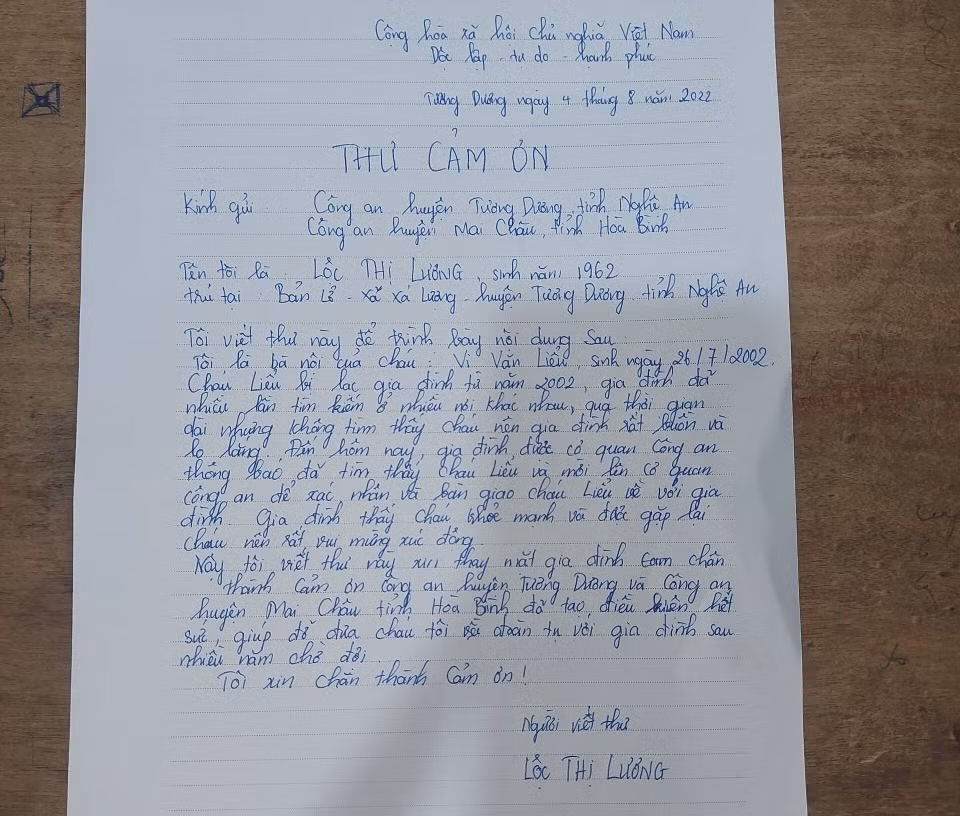 Cộng hòa xã hội chủ nghĩa Việt Nam
Độc lập - tự do - hạnh phúc
Tương Dương ngày 4 tháng 8 năm 2022
THƯ CẢM ƠN
Kính gửi : Công an huyện Tương Dương, tỉnh Nghệ An
Công an huyện Mai Châu, tỉnh Hòa Bình
Tên tôi là : LỘC THỊ LƯƠNG, sinh năm 1962
trú tại : Bản Lở - xã Xá Lượng - huyện Tương Dương, tỉnh Nghệ An
Tôi viết thư này để trình bày nội dung sau
Tôi là bà nội của cháu : Vi Văn Liễu, sinh ngày 26/7/2002.
Cháu Liễu bị lạc gia đình từ năm 2002, gia đình đã
nhiều lần tìm kiếm ở nhiều nơi khác nhau, qua thời gian
dài nhưng không tìm thấy cháu nên gia đình rất buồn và
lo lắng. Đến hôm nay, gia đình được cơ quan Công an
thông báo đã tìm thấy cháu Liễu và mời lên cơ quan
công an để xác nhận và bàn giao cháu Liễu về với gia
đình. Gia đình thấy cháu khỏe mạnh và được gặp lại
cháu nên rất vui mừng xúc động.
Nay tôi viết thư này xin thay mặt gia đình chân
thành cảm ơn Công an huyện Tương Dương và Công an
huyện Mai Châu tỉnh Hoà Bình đã tạo điều kiện hết
sức, giúp đỡ đứa cháu tôi về đoàn tụ với gia đình sau
nhiều năm chờ đợi.
Tôi xin chân thành cảm ơn !
Người viết thư
LỘC THỊ LƯƠNG